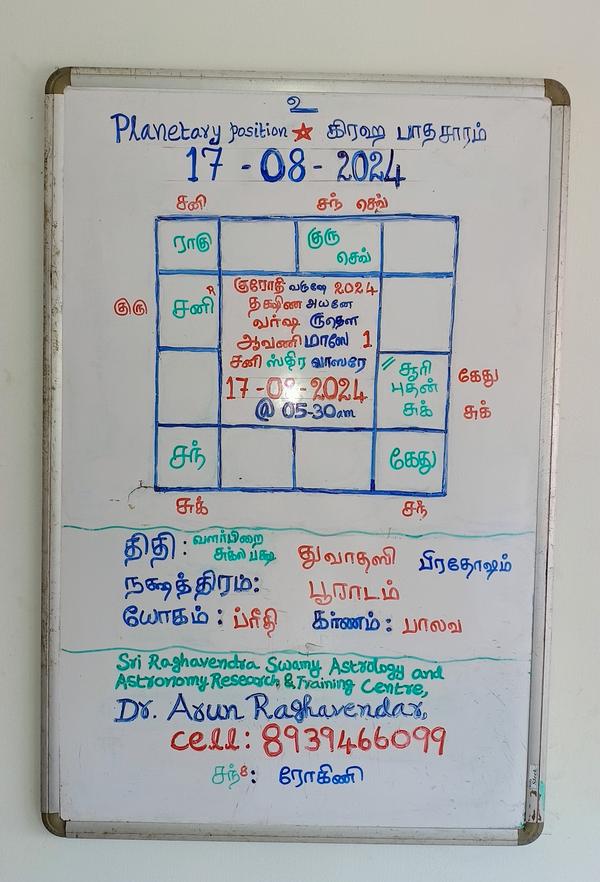 உ
Planetary position ★ கிரஹ பாதசாரம்
17 - 08 - 2024
சனி சந் செவ்
ராகு குரு
செவ்
குரு சனி R
குரோதி வருஷே 2024
தக்ஷிண அயனே
வர்ஷ ருதௌ
ஆவணி மாஸே 1
சனி ஸ்திர வாஸரே
17-08-2024
@ 05-30am
// சூரி
புதன்
சுக்
கேது
சுக்
சந் கேது
சுக் சந்
திதி : வளர்பிறை
சுக்ல பக்ஷ துவாதஸி பிரதோஷம்
நக்ஷத்திரம்: பூராடம்
யோகம் : ப்ரீதி கர்ணம் : பாலவ
Sri Raghavendra Swamy Astrology and
Astronomy Research & Training Centre,
Dr. Arun Raghavendar,
cell: 8939466099
சந்8: ரோகிணி